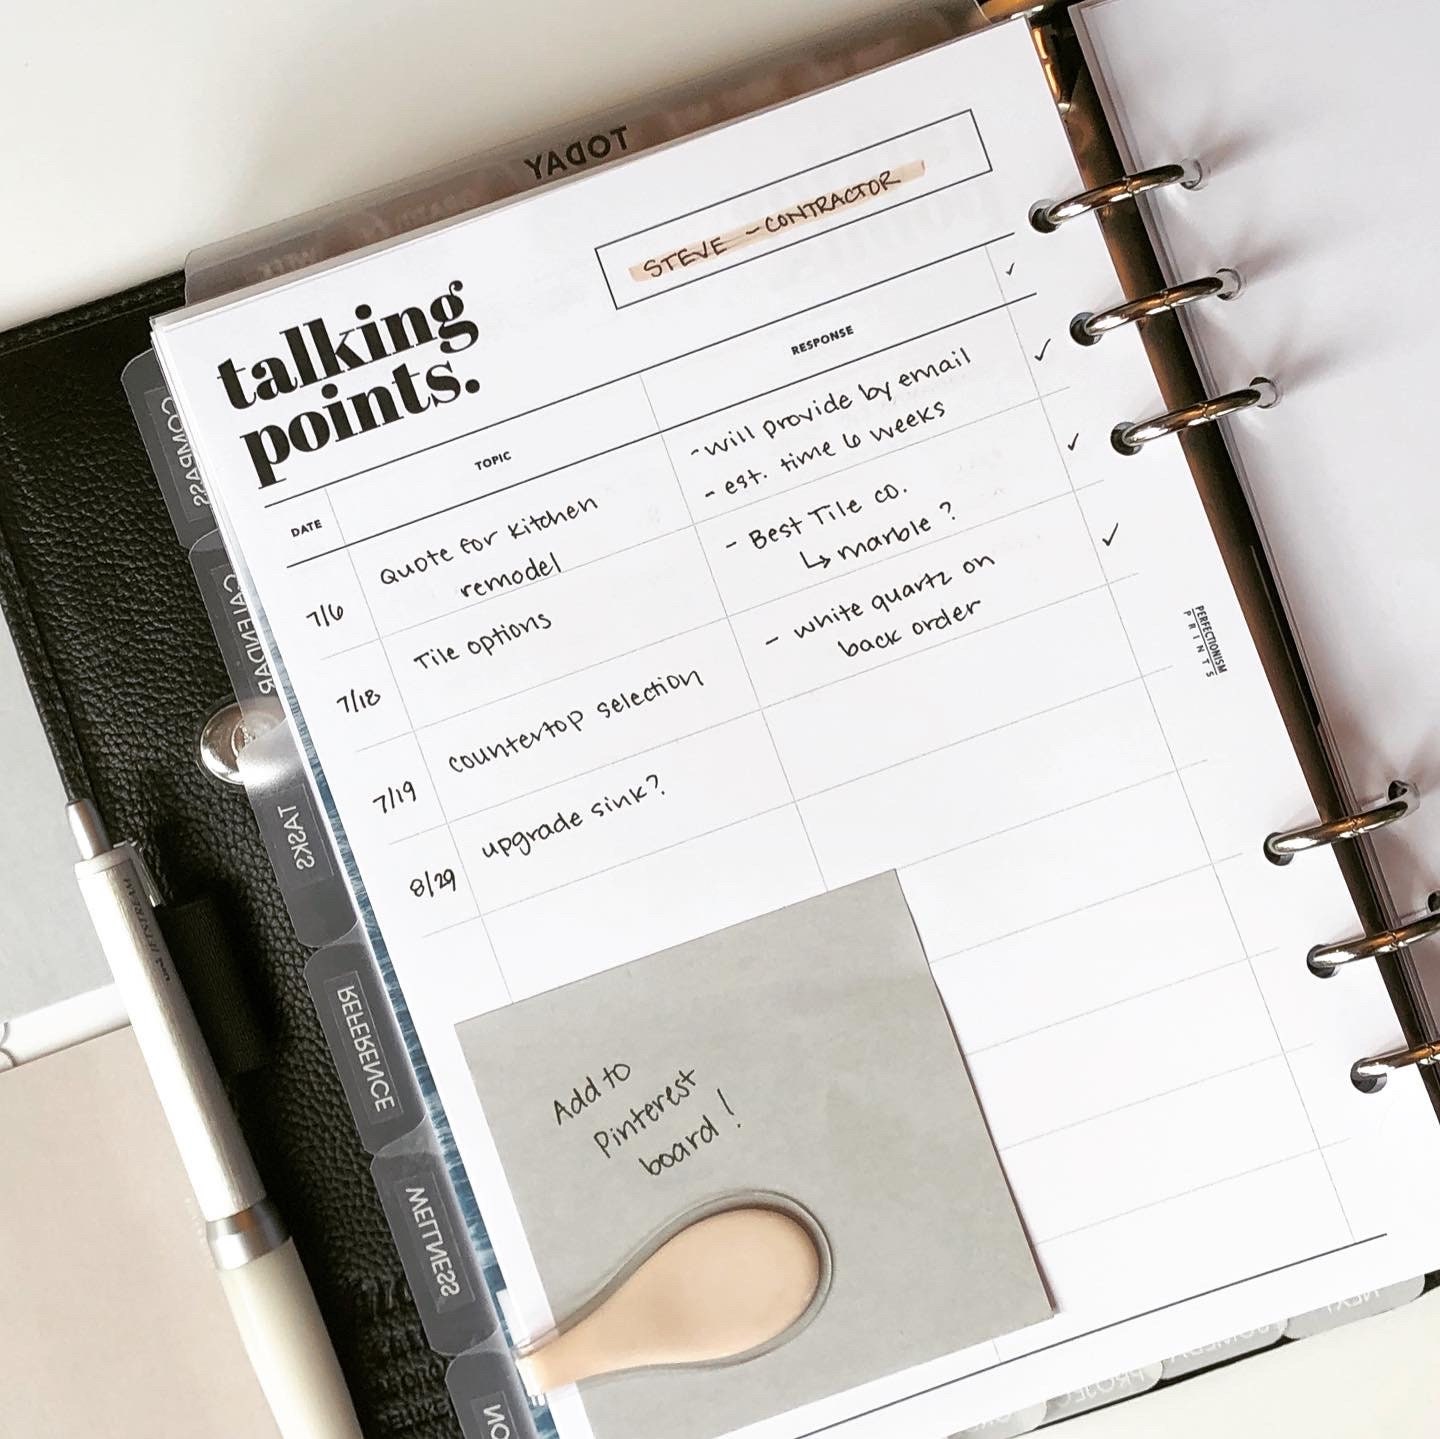 TODAY
STEVE - CONTRACTOR
talking
points.
DATE
TOPIC
RESPONSE
✓
7/6
Quote for Kitchen
remodel
- will provide by email
- est. time 6 weeks
✓
7/18
Tile options
- Best Tile co.
↳ marble?
✓
7/19
countertop selection
- white quartz on
back order
✓
8/29
upgrade sink?
Add to
Pinterest
board!
PERFECTIONISM
PRINTS
COMPASS
CALENDAR
TASKS
REFERENCE
WELLNESS
uni JETSTREAM
NEXT